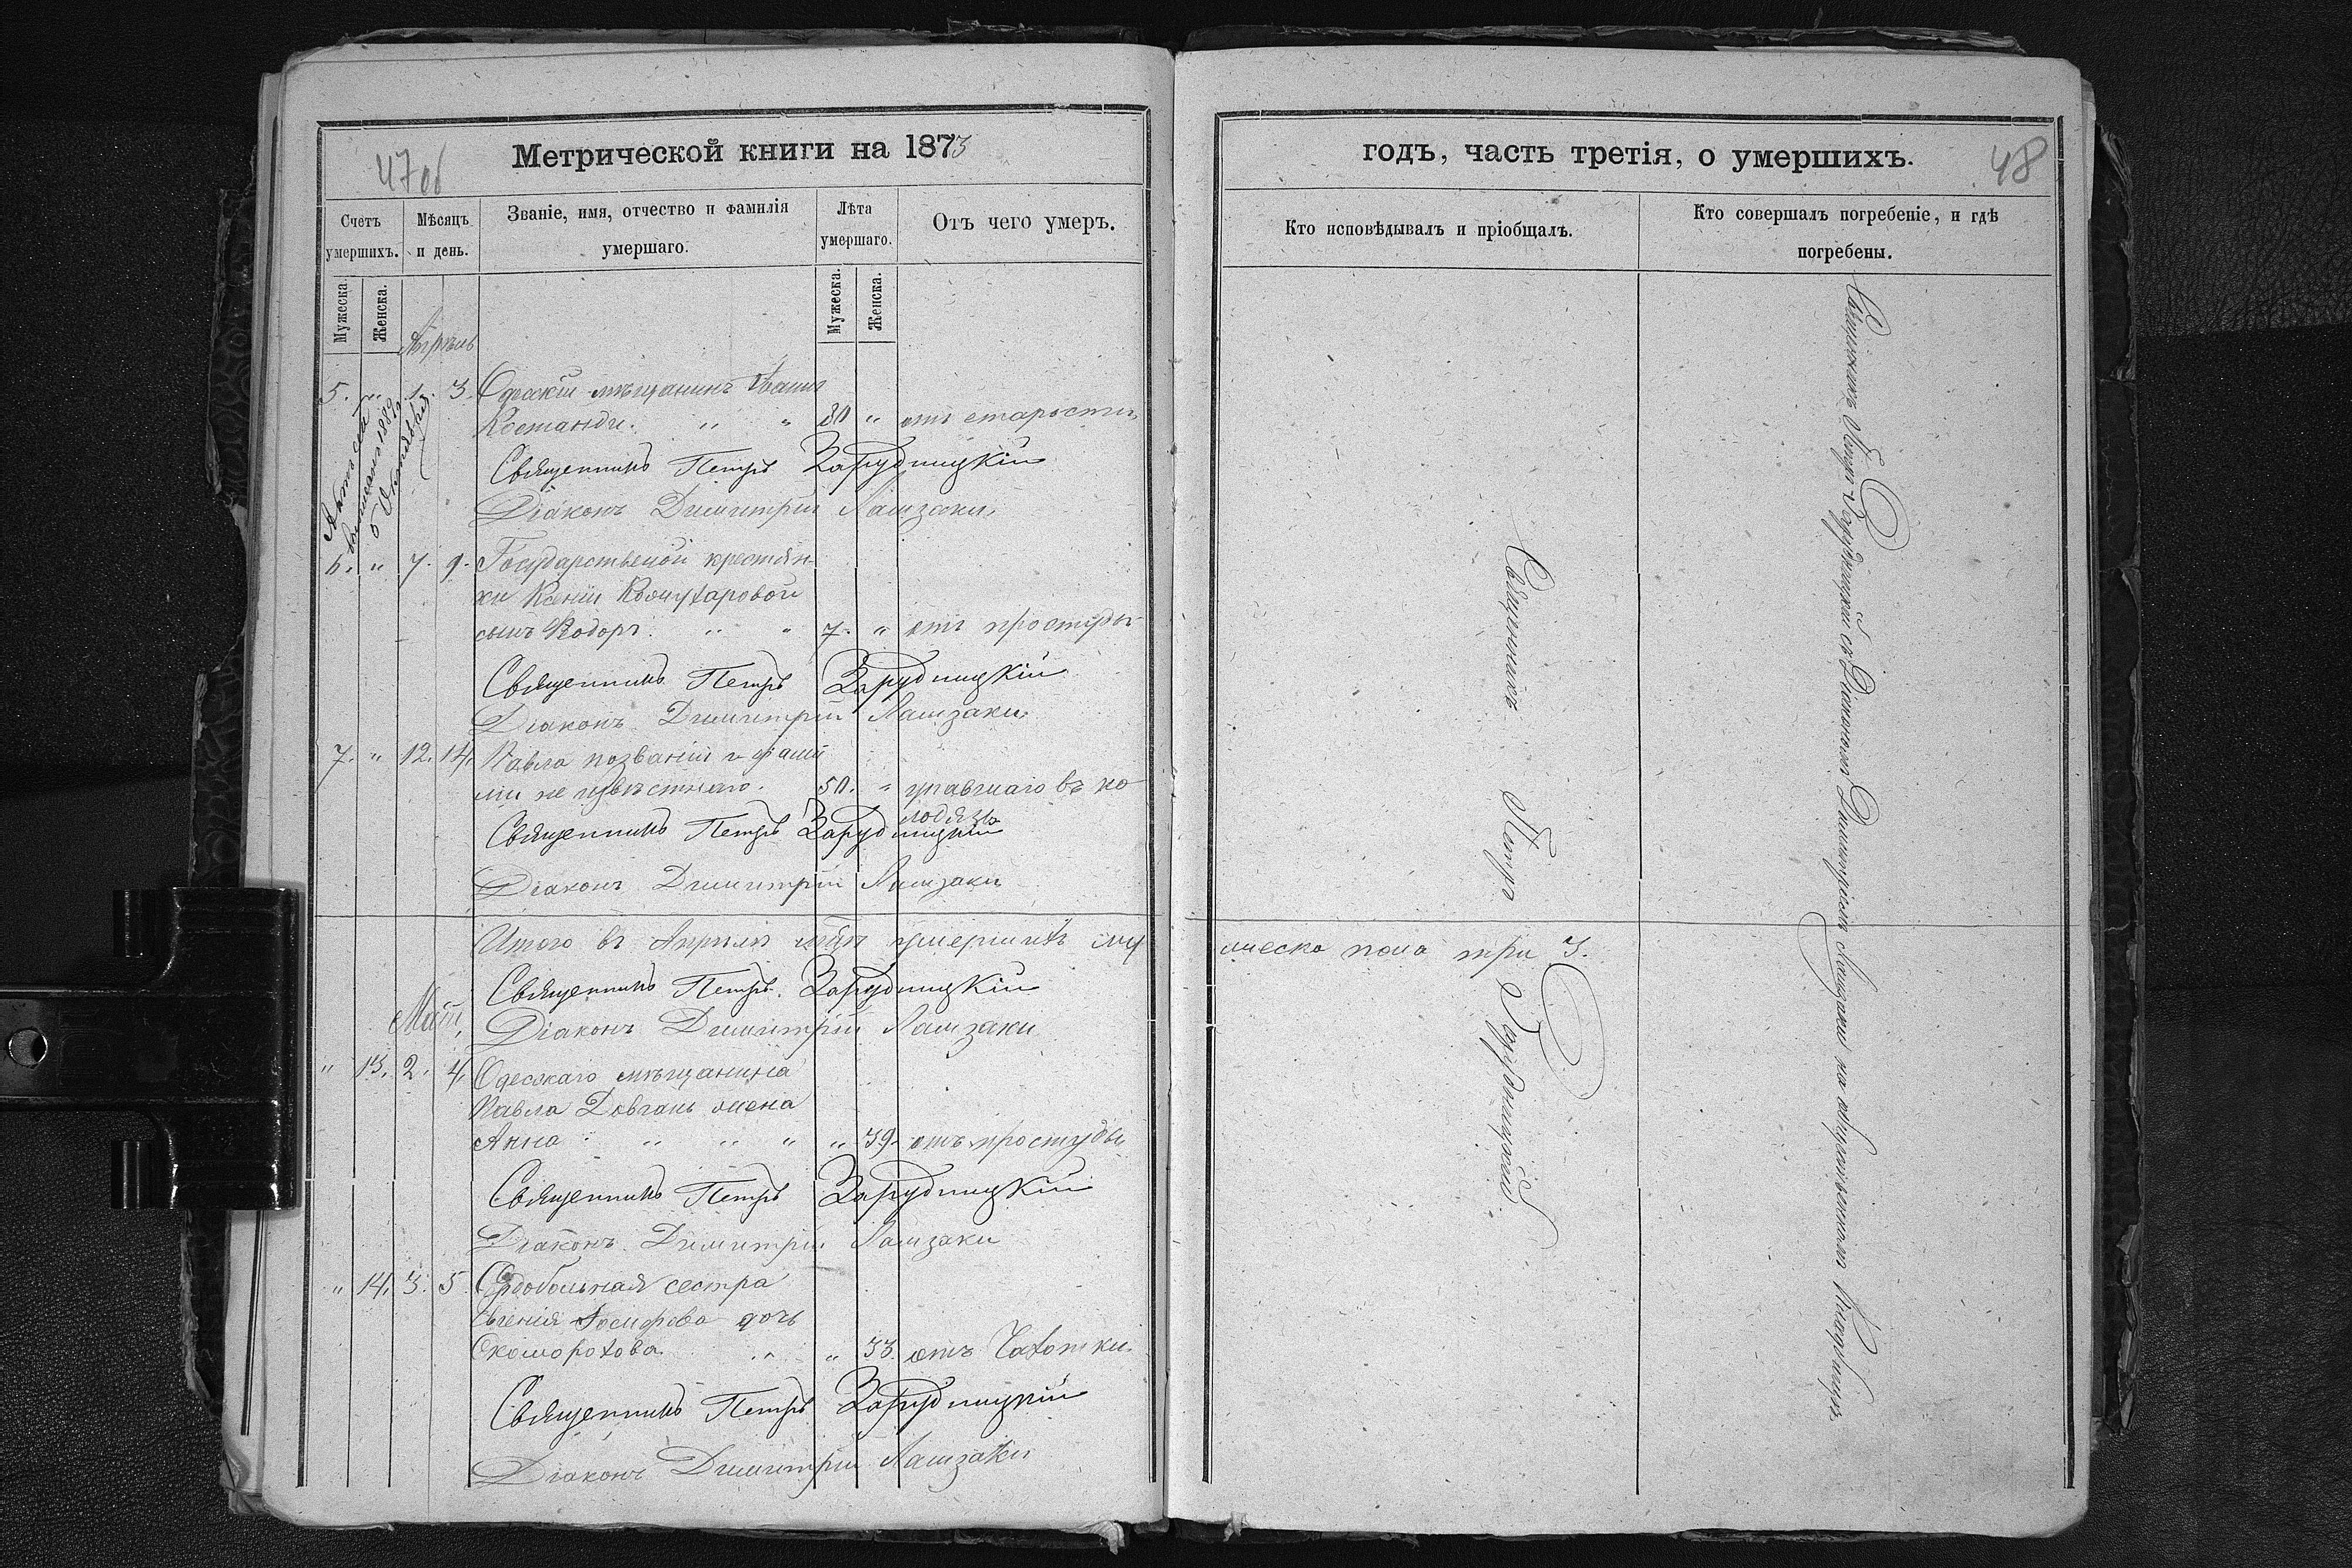 47об
Метрической книги на 1873
Счетъ умершихъ.
Мѣсяцъ и день.
Званіе, имя, отчество и фамилія умершаго.
Лѣта умершаго.
Отъ чего умеръ.
Мужеска.
Женска.
Мужеска.
Женска.
Апрѣль
5. " 1. 3. Одескій мѣщанинъ Иванъ
Костанди. " " 80 " отъ старости
Священникъ Петръ Зарудницкій
Діаконъ Димитрій Лашзаки
Метрика
выписана 1889
5 Октября
6. " 7. 9. Государственой крестян-
ки Ксеніи
сынъ Ѳодоръ. " " 7. " отъ простуды
Священникъ Петръ Зарудницкій
Діаконъ Димитрій Лашзаки
7. " 12. 14. Павла позваній и фами
ліи не извѣстнаго. 50. " упавшаго въ ко
лодязь
Священникъ Петръ Зарудницкій
Діаконъ Димитрій Лашзаки
Итого въ Апрѣлѣ мцѣ умершихъ му
Священникъ Петръ Зарудницкій
Май,
Діаконъ Димитрій Лашзаки
" 13. 2. 4. Одескаго мѣщанина
Павла Довгань жена
Анна " " " " 39. отъ простуды
Священникъ Петръ Зарудницкій
Діаконъ Димитрій Лашзаки
" 14. 3. 5. Сердобольная сестра
Евгенія Іосифова дочь
Скоморохова. " " 33. отъ Чахотки.
Священникъ Петръ Зарудницкій
Діаконъ Димитрій Лашзаки
годъ, часть третія, о умершихъ.
48
Кто исповѣдывалъ и пріобщалъ.
Кто совершалъ погребеніе, и гдѣ
погребены.
Священникъ Петръ Зарудницкій
жеска пола три 3.
Священникъ Петръ Зарудницкій съ Діакономъ Димитріемъ Лашзаки на общественномъ Кладбищѣ